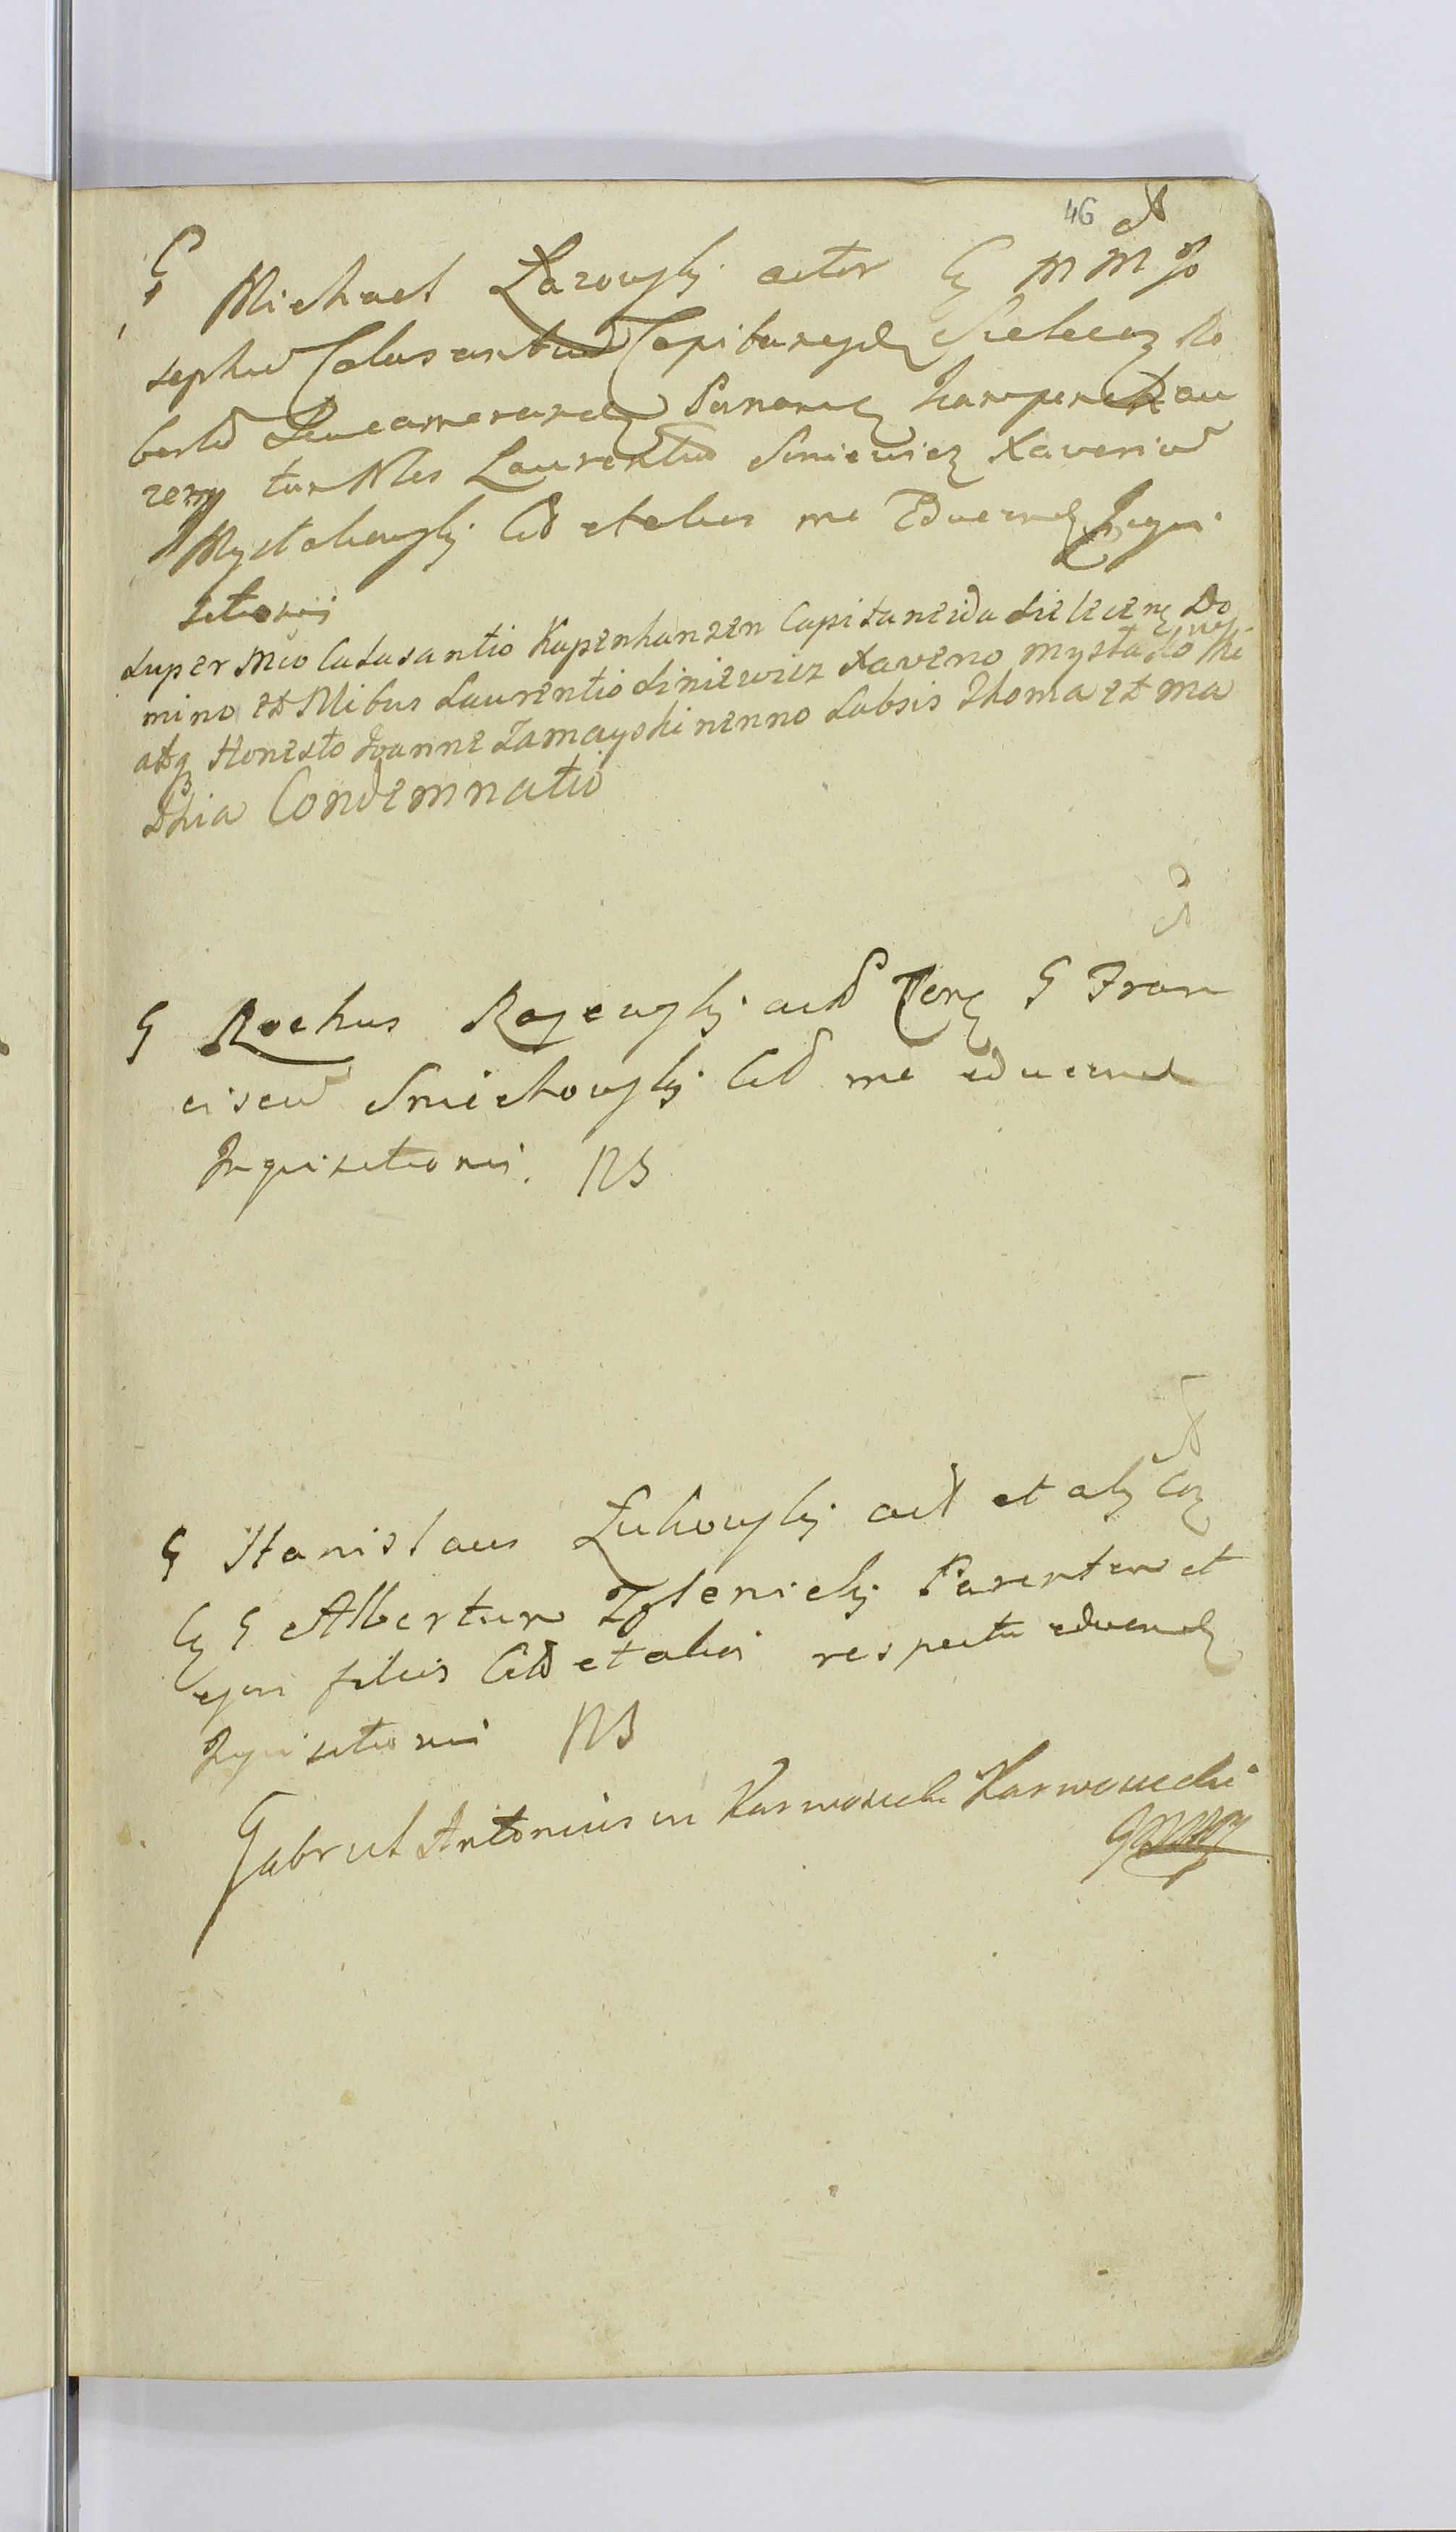 46
G Michael Lazowski actor G M M Jo
sephus Calasantius Capitaneyd Sielecen Ro
bertus Pananci
zen tum Nles Laurentius Siniewicz Xaverius
Mystakowski Citt et alios me Educend Inqui
sitionis
Super Mco Calasantio Kapenhanzen Capitaneida Sielecen Do
mino et Nlibus Laurentio Siniewicz Xavero Mystakowski
atq Honesto Joanne Zamayski nenno Subsis Thoma et Ma
thia Condemnatio
G Rochus Rozewski act Cong G Fran
ciscus Sniechowski Citt me educend
Inquisitionis. NS
G Stanislaus Zukowski act et alij Con
G G Albertum Zglenicki Parentem et
ejus filios Citt et alios respectu educend
Inquisitionis NS
Gabriel Antonius in Karwosiecki Karwosiecki